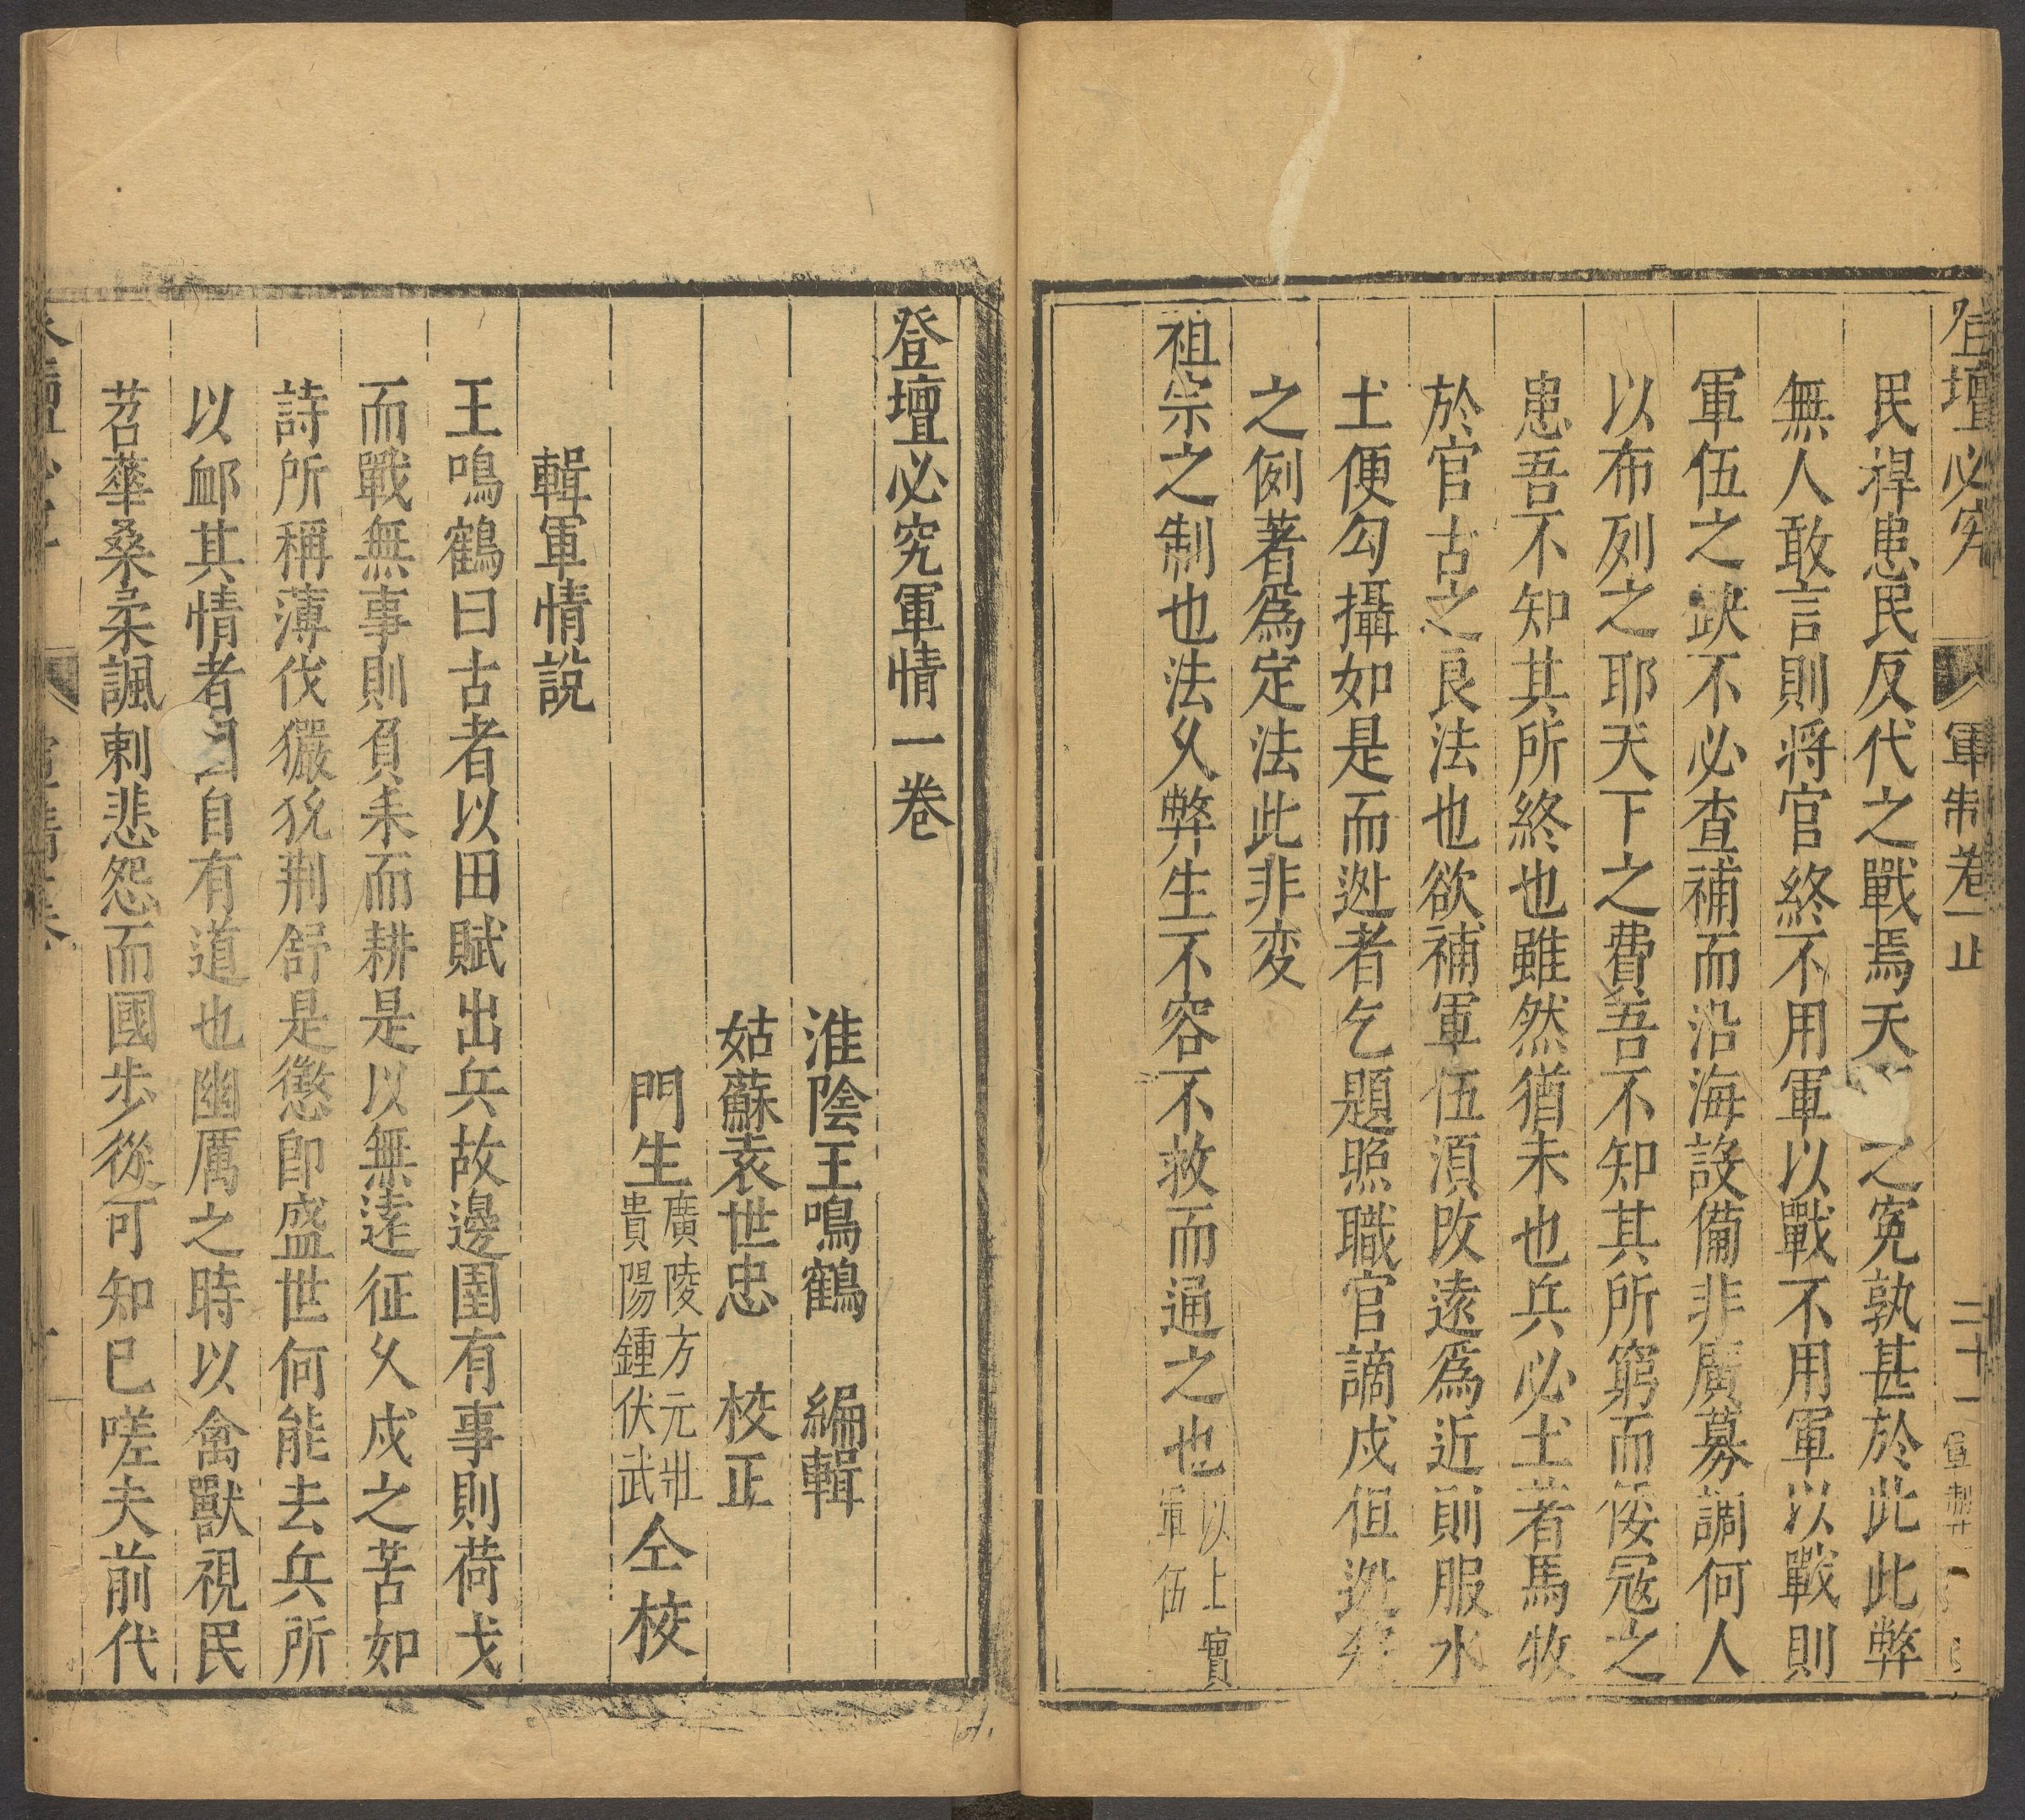 登壇必究 軍制卷一止 二十一
民捍患民反代之戰焉天之冤孰甚於此此弊
無人敢言則将官終不用軍以戰不用軍以戰則
軍伍之缺不必查補而沿海設備非廣募調何人
以布列之耶天下之費吾不知其所窮而倭冦之
患吾不知其所終也雖然猶未也兵必土著馬牧
於官古之良法也欲補軍伍須改遠爲近則服水
土便勾攝如是而迯者乞題照職官謫戍但迯
之例著爲定法此非变
祖宗之制也法久弊生不容不救而通之也以上實軍伍
登壇必究軍情一卷
淮陰王鳴鶴 編輯
姑蘇袁世忠 校正
門生廣陵方元壯貴陽鍾伏武仝校
輯軍情說
王鳴鶴曰古者以田賦出兵故邊圉有事則荷戈
而戰無事則負耒而耕是以無遠征久戍之苦如
詩所稱薄伐玁狁荆舒是懲卽盛世何能去兵所
以卹其情者自有道也幽厲之時以禽獸視民
苕華桑柔諷刺悲怨而國步從可知已嗟夫前代